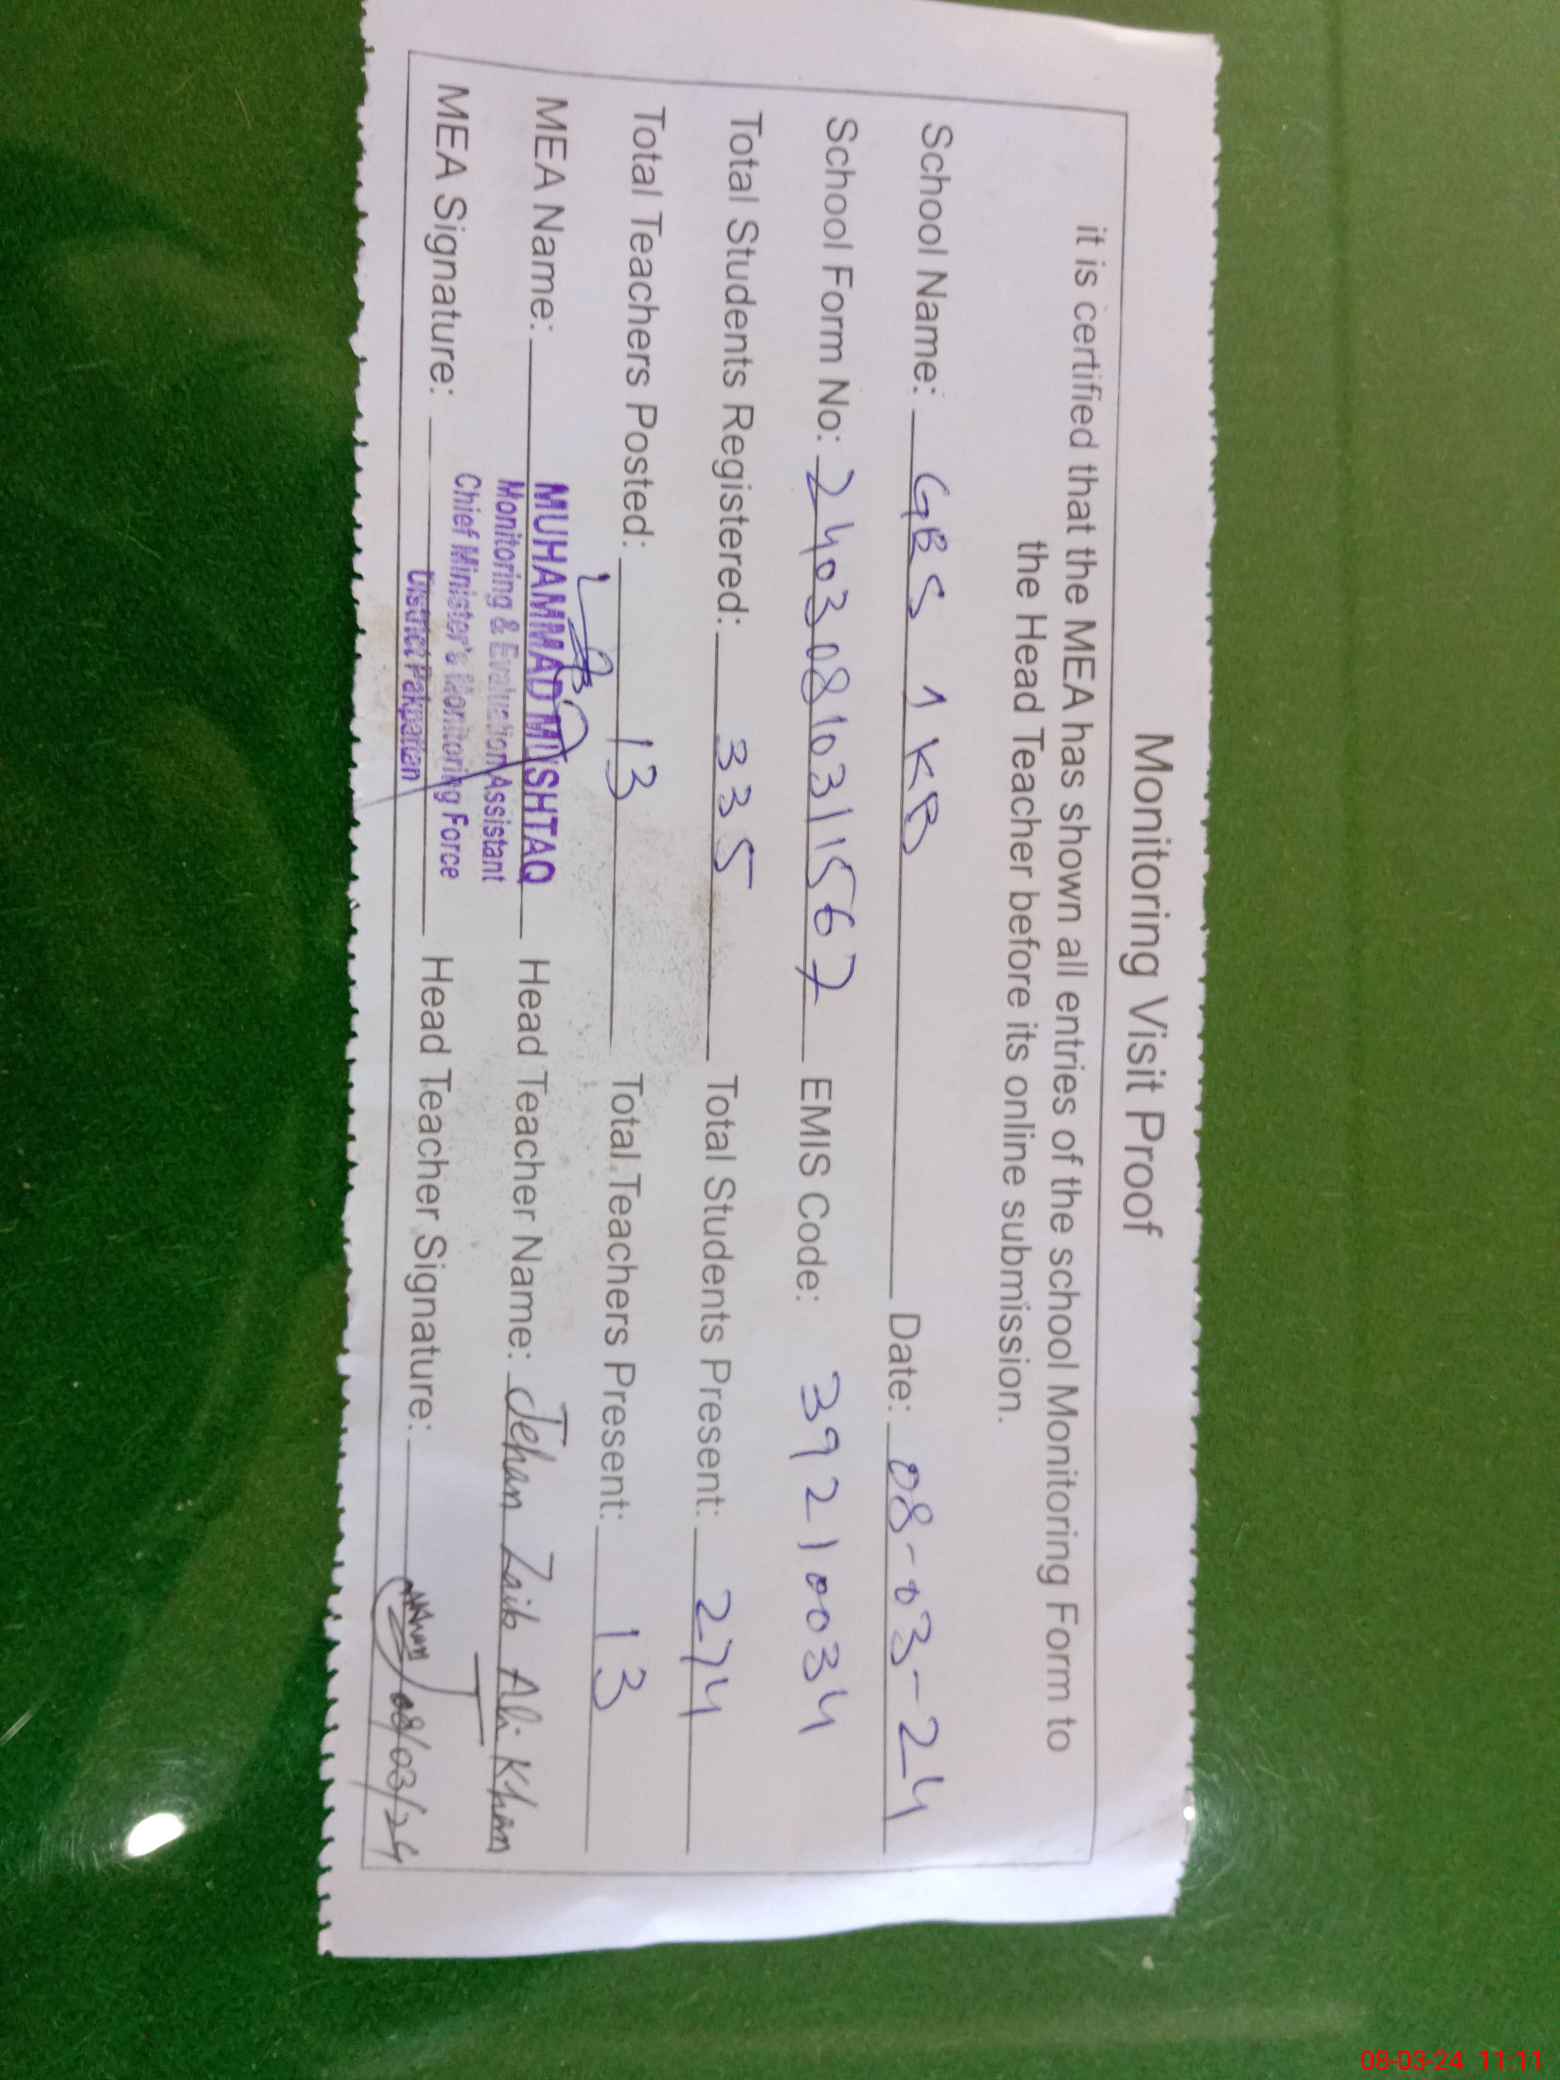 Monitoring Visit Proof
it is certified that the MEA has shown all entries of the school Monitoring Form to
the Head Teacher before its online submission.
School Name: GBS 1 KB Date: 08-03-24
School Form No: 24030810311567 EMIS Code: 39210034
Total Students Registered: 335 Total Students Present: 274
Total Teachers Posted: 13 Total Teachers Present: 13
MEA Name: MUHAMMAD MUSHTAQ Head Teacher Name: Jehan Zaib Ali Khan
Monitoring & Evaluation Assistant
Chief Minister's Monitoring Force
MEA Signature: District Pakpattan Head Teacher Signature: AKhan 08/03/24
08-03-24 11:11